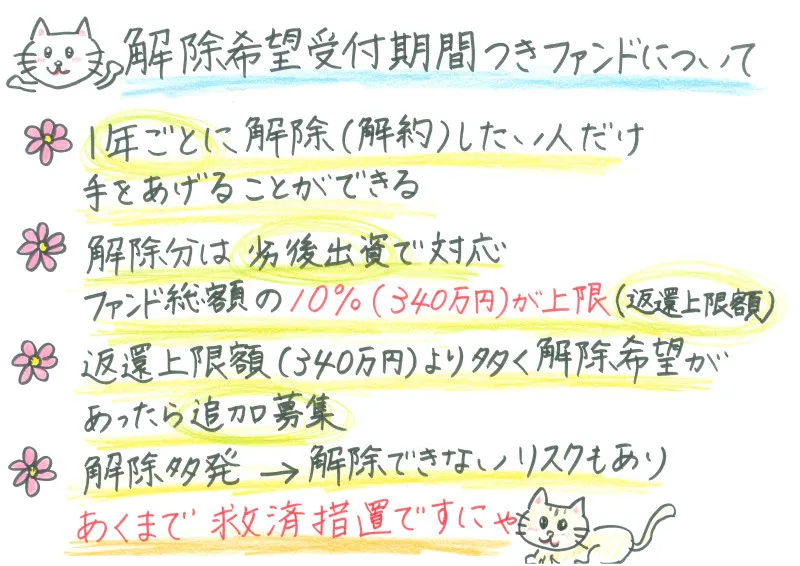 解除希望受付期間つきファンドについて
1年ごとに解除(解約)したい人だけ
手をあげることができる
解除分は劣後出資で対応
ファンド総額の10%(340万円)が上限(返還上限額)
返還上限額(340万円)より多く解除希望が
あったら追加募集
解除多発→解除できないリスクもあり
あくまで救済措置ですにゃ